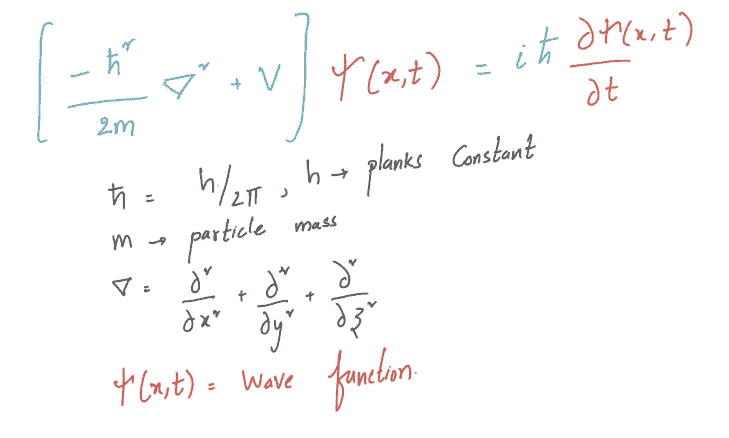 [ -ħ²/2m ∇² + V ] Ψ(x,t) = iħ ∂Ψ(x,t)/∂t
ħ = h/2π , h → planks Constant
m → particle mass
∇ = ∂²/∂x² + ∂²/∂y² + ∂²/∂z²
Ψ(x,t) = Wave function.